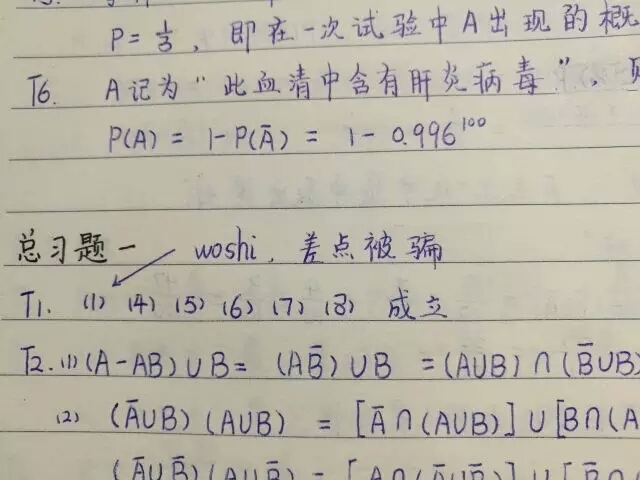 P = 1/3, 即在一次试验中A出现的概
T6. A记为"此血清中含有肝炎病毒",
P(A) = 1-P(Ā) = 1-0.996¹⁰⁰
总习题一 woshi, 差点被骗
T1. (1) (4) (5) (6) (7) (8) 成立
T2. (1) (A-AB)∪B = (AB̄)∪B = (A∪B)∩(B̄∪B)
(2) (Ā∪B)(A∪B) = [Ā∩(A∪B)]∪[B∩(A
(Ā∪B̄)(A∪B̄) = [A∩(Ā∪B̄)]∪[B̄∩(